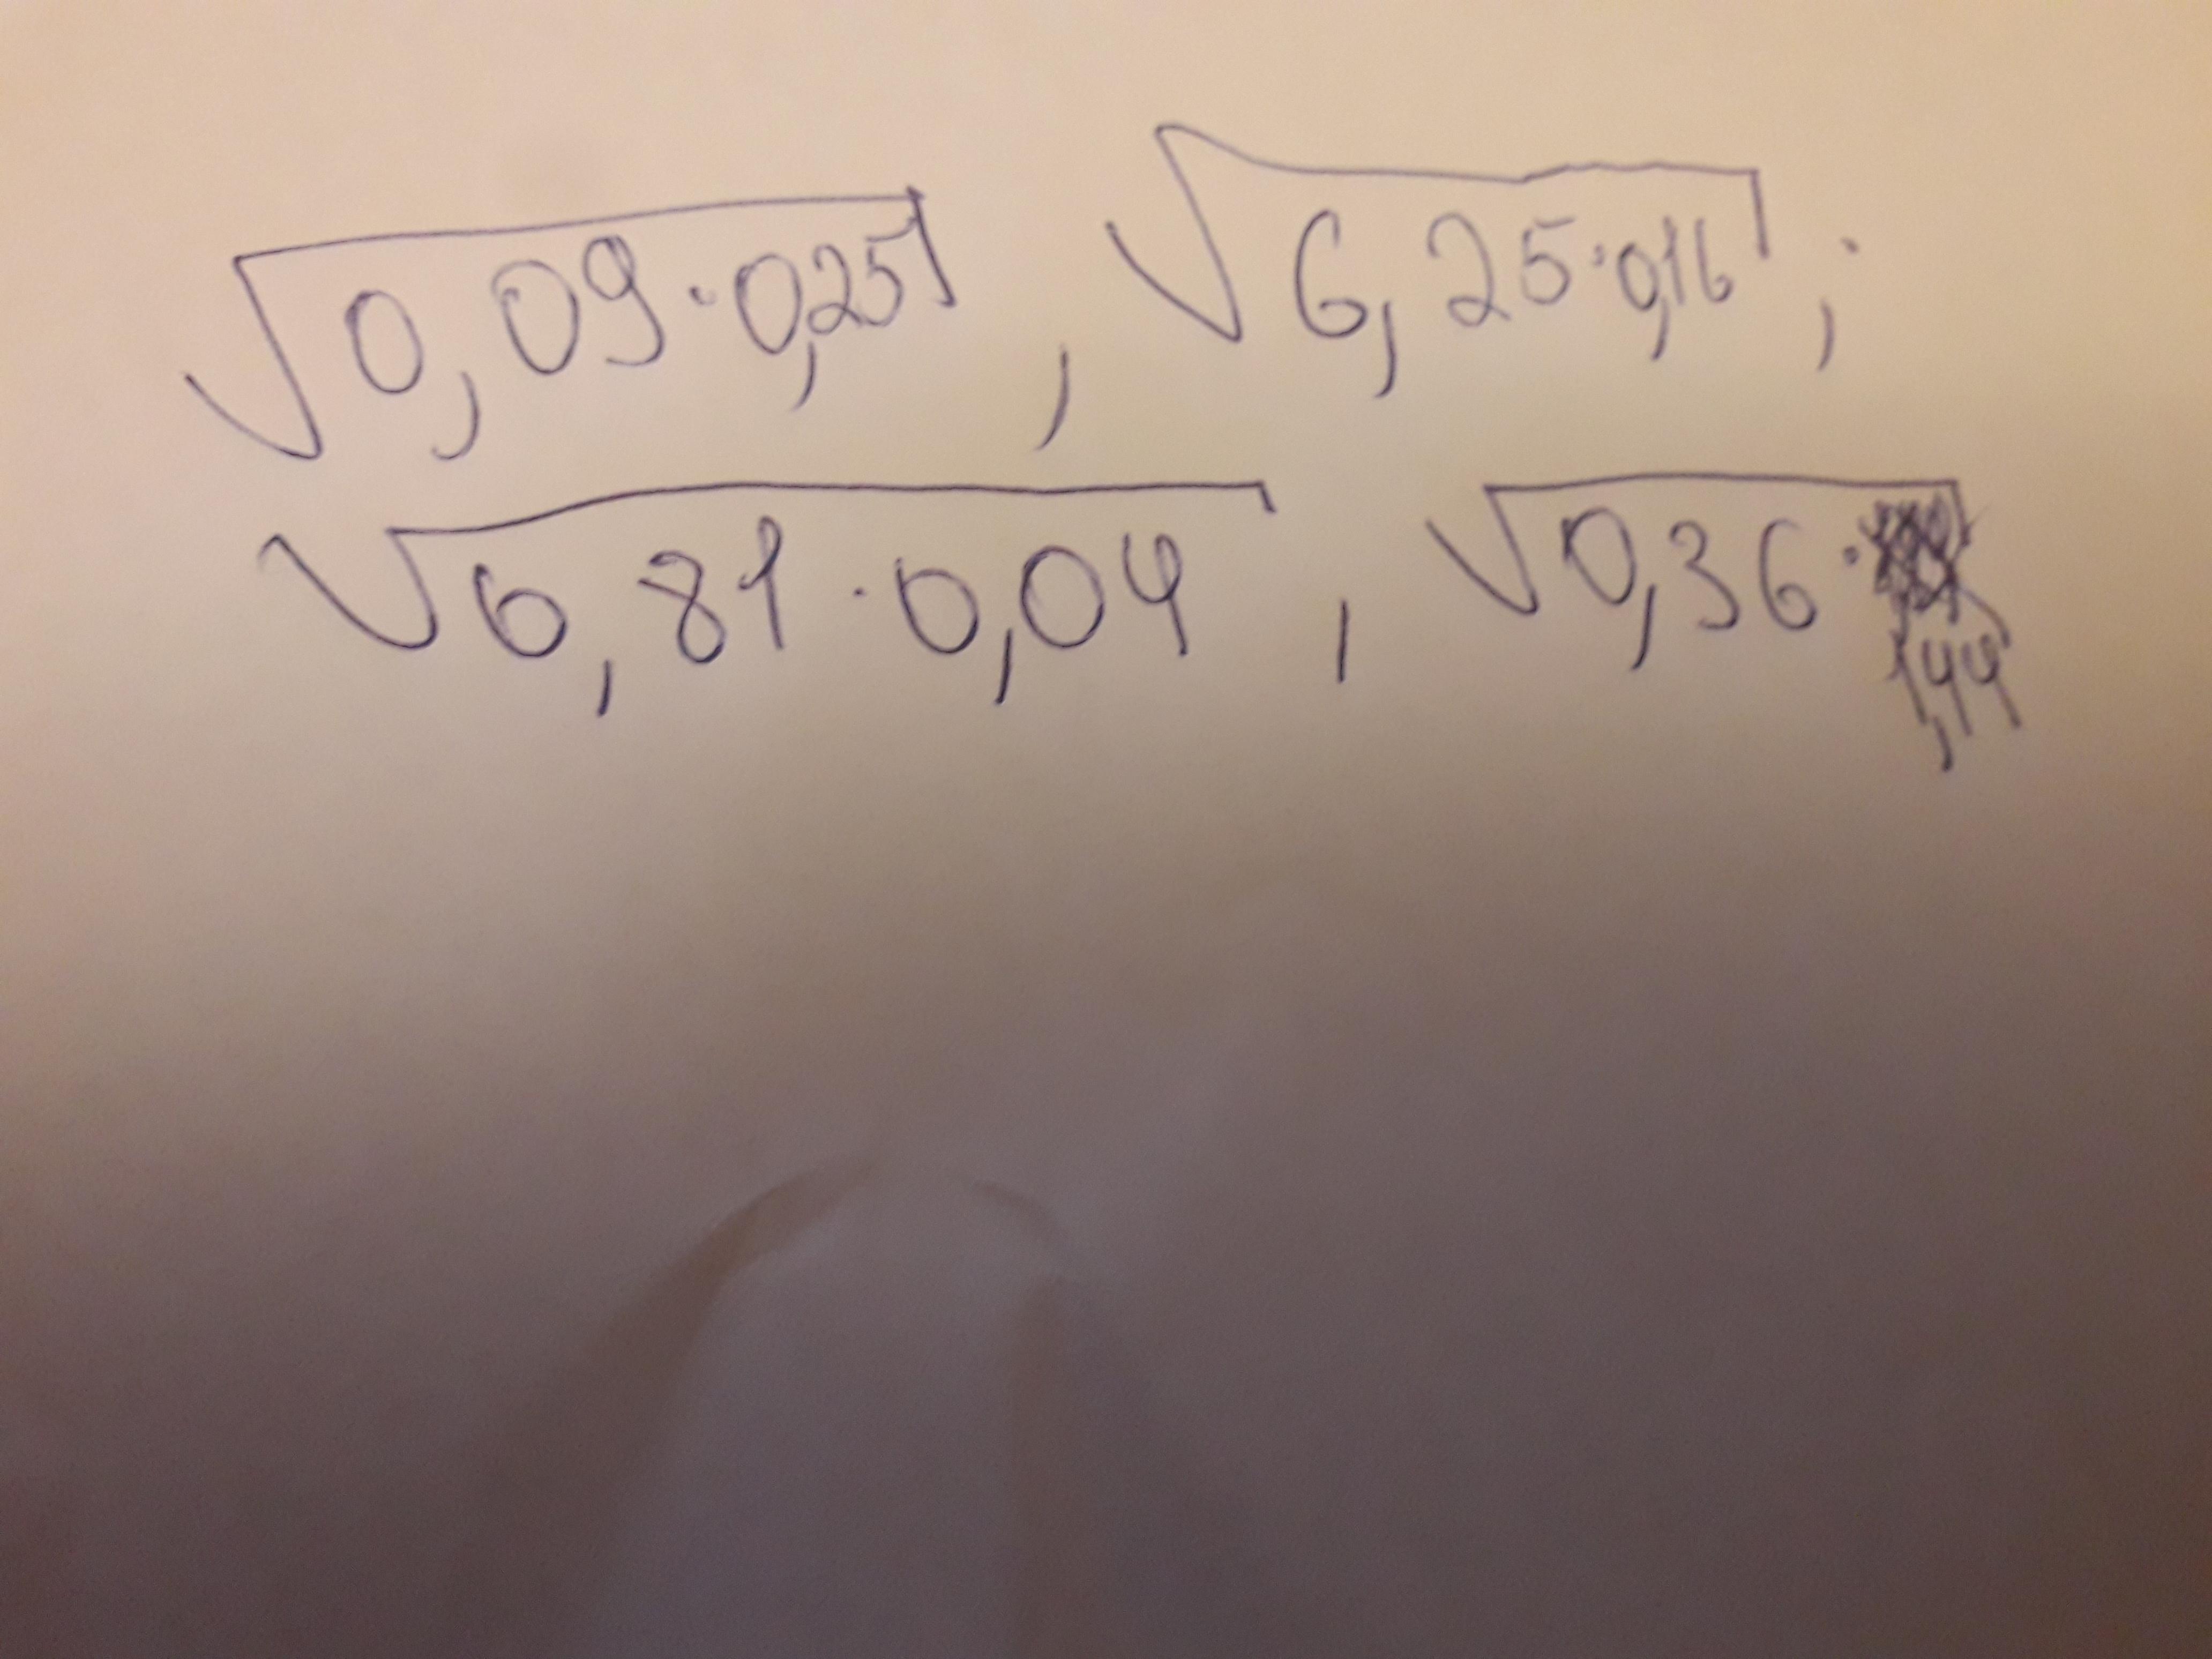 √0,09·0,25, √6,25·0,16;
√0,81·0,04, √0,36·1,44